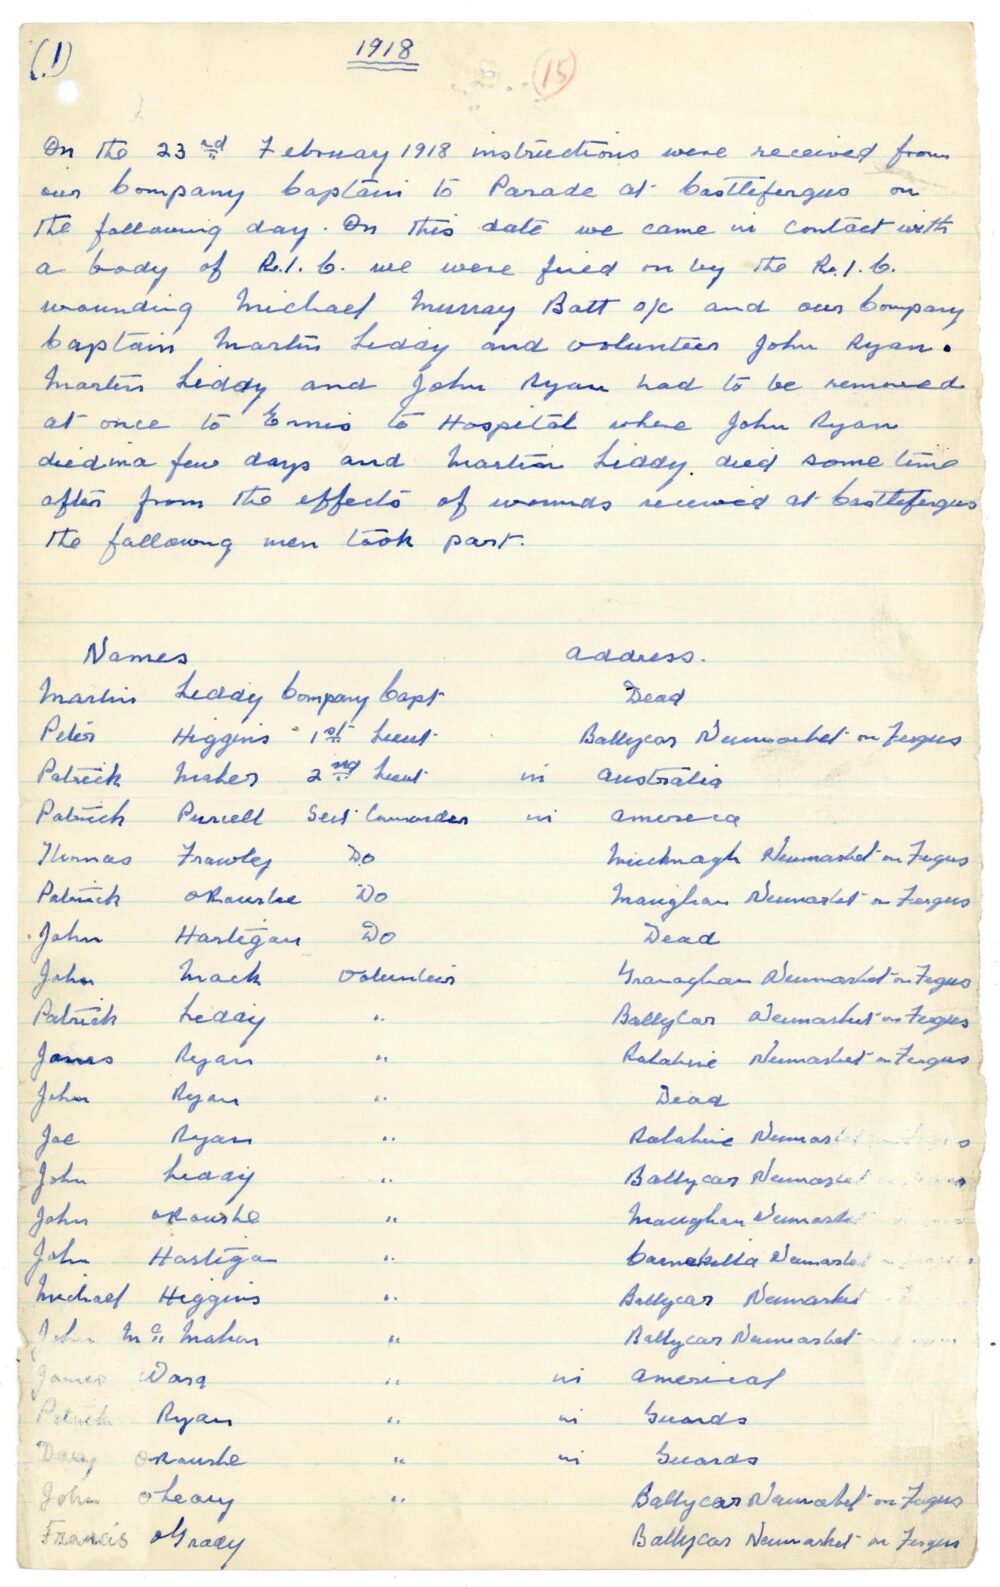 (1)
1918
15
On the 23rd February 1918 instructions were received from
our Company Captain to Parade at Castlefergus on
the following day. On this date we came in contact with
a body of R.I.C. we were fired on by the R.I.C.
wounding Michael Murray Batt o/c and our Company
Captain Martin Liddy and volunteer John Ryan.
Martin Liddy and John Ryan had to be removed
at once to Ennis to Hospital where John Ryan
died in a few days and Martin Liddy died some time
after from the effects of wounds received at Castlefergus
the following men took part.
Names address.
Martin Liddy Company Capt Dead
Peter Higgins 1st Lieut Ballycar Newmarket on Fergus
Patrick Maher 2nd Lieut in Australia
Patrick Purcell Sect Commander in America
Thomas Frawley Do Newmarket on Fergus
Patrick O Rourke Do Maughan Newmarket on Fergus
John Hartigan Do Dead
John Mack Volunteer Granaghan Newmarket on Fergus
Patrick Liddy " Ballycar Newmarket on Fergus
James Ryan " Ralahine Newmarket on Fergus
John Ryan " Dead
Joe Ryan " Ralahine Newmarket
John Liddy " Ballycar Newmarket
John O Rourke " Maughan Newmarket
John Hartigan " Newmarket
Michael Higgins " Ballycar Newmarket
John Mc Mahon " Ballycar Newmarket
James " in America
Patrick Ryan " in Guards
O Rourke " in Guards
John O Leary " Ballycar Newmarket on Fergus
Francis O Grady Ballycar Newmarket on Fergus